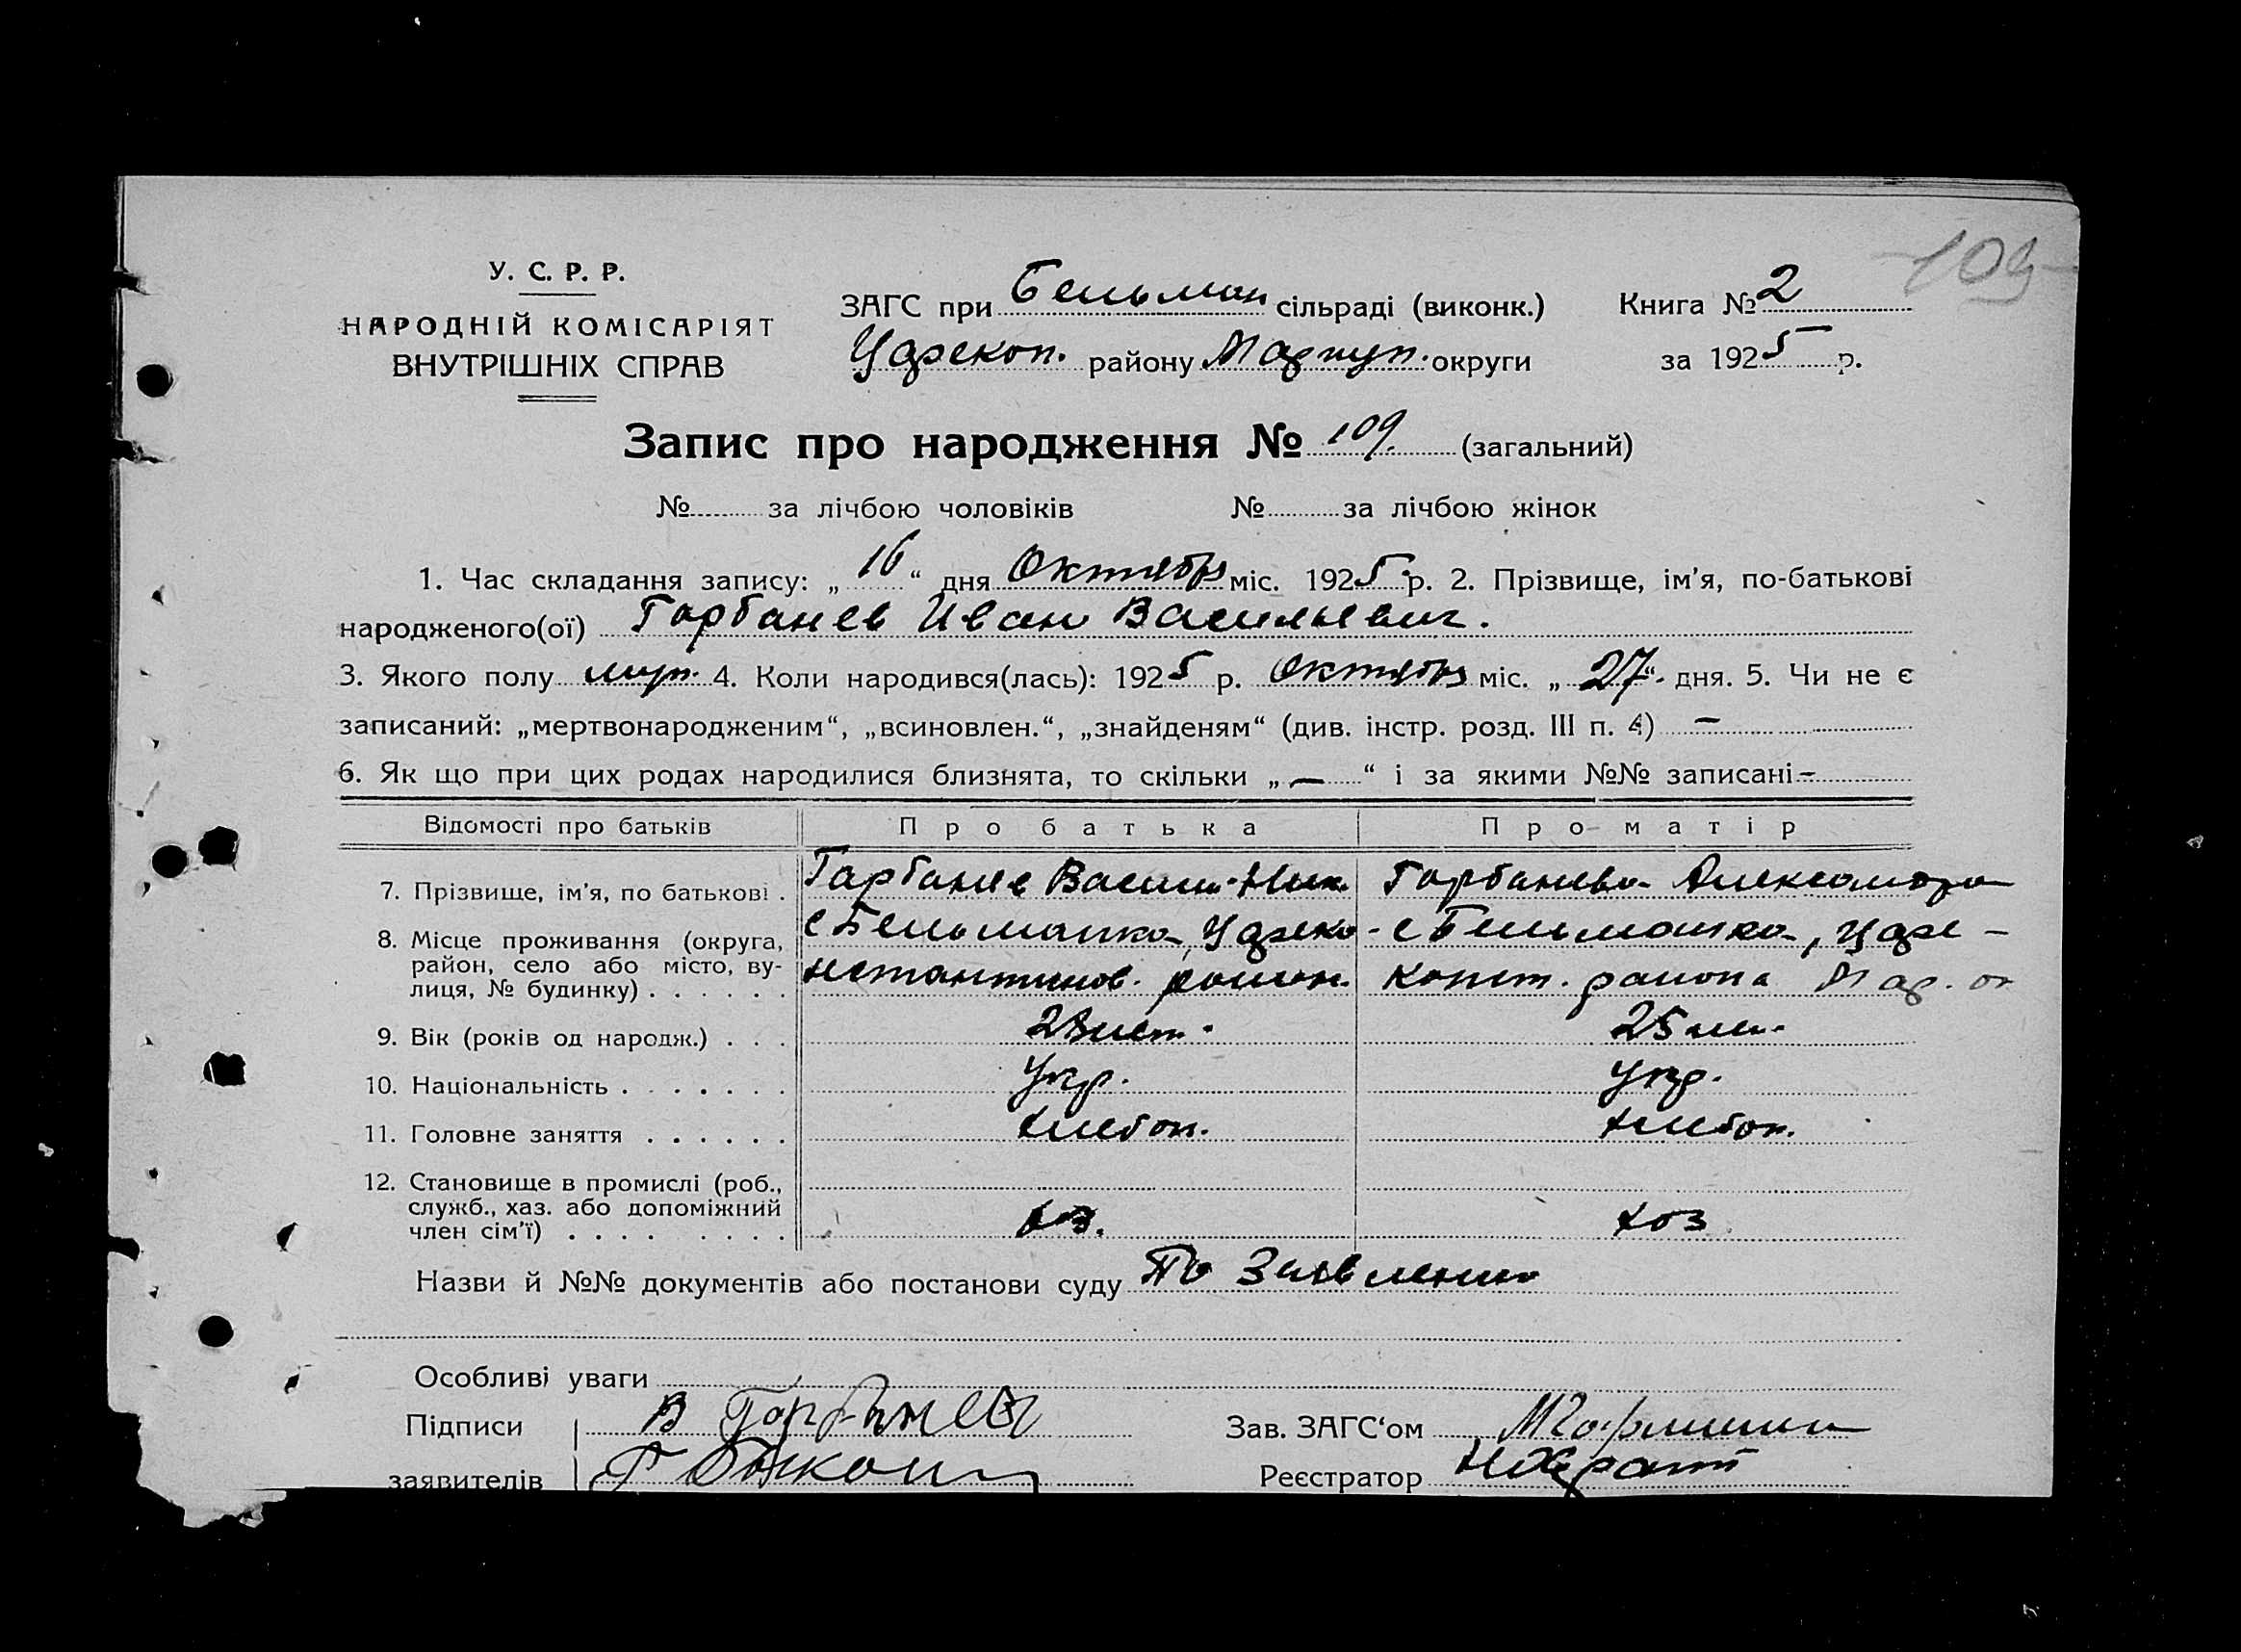 109
У. С. Р. Р.
НАРОДНІЙ КОМІСАРІЯТ
ВНУТРІШНІХ СПРАВ
ЗАГС при Бельман сільраді (виконк.) Книга № 2
Царекон. району Мариуп. округи за 1925 р.
Запис про народження № 109. (загальний)
№ за лічбою чоловіків № за лічбою жінок
1. Час складання запису: „16“ дня Октября міс. 1925 р. 2. Прізвище, ім’я, по-батькові
народженого(ої) Горбанев Иван Васильевич.
3. Якого полу муж. 4. Коли народився(лась): 1925 р. Октября міс. „27“ дня. 5. Чи не є
записаний: „мертвонародженим“, „всиновлен.“, „знайденям“ (див. інстр. розд. III п. 4) —
6. Як що при цих родах народилися близнята, то скільки „—“ і за якими №№ записані —
Відомості про батьків Про батька Про матір
7. Прізвище, ім’я, по батькові . Горбанев Васили Ник. Горбанева Александра
8. Місце проживання (округа, район, село або місто, вулиця, № будинку) . . . . . . с Бельманка, Царекон-
нстантинов. район. с Бельманка, Царе-
конст. района Мар. ок
9. Вік (років од народж.) . . . лет. 25 лет.
10. Національність . . . . . . . Укр. Укр.
11. Головне заняття . . . . . . Хлебоп. Хлебоп.
12. Становище в промислі (роб., служб., хаз. або допоміжний член сім’ї) . . . . . . . . хоз. хоз
Назви й №№ документів або постанови суду По Заявлению
Особливі уваги
Підписи В Горбанев Зав. ЗАГС‘ом
заявителів Реєстратор